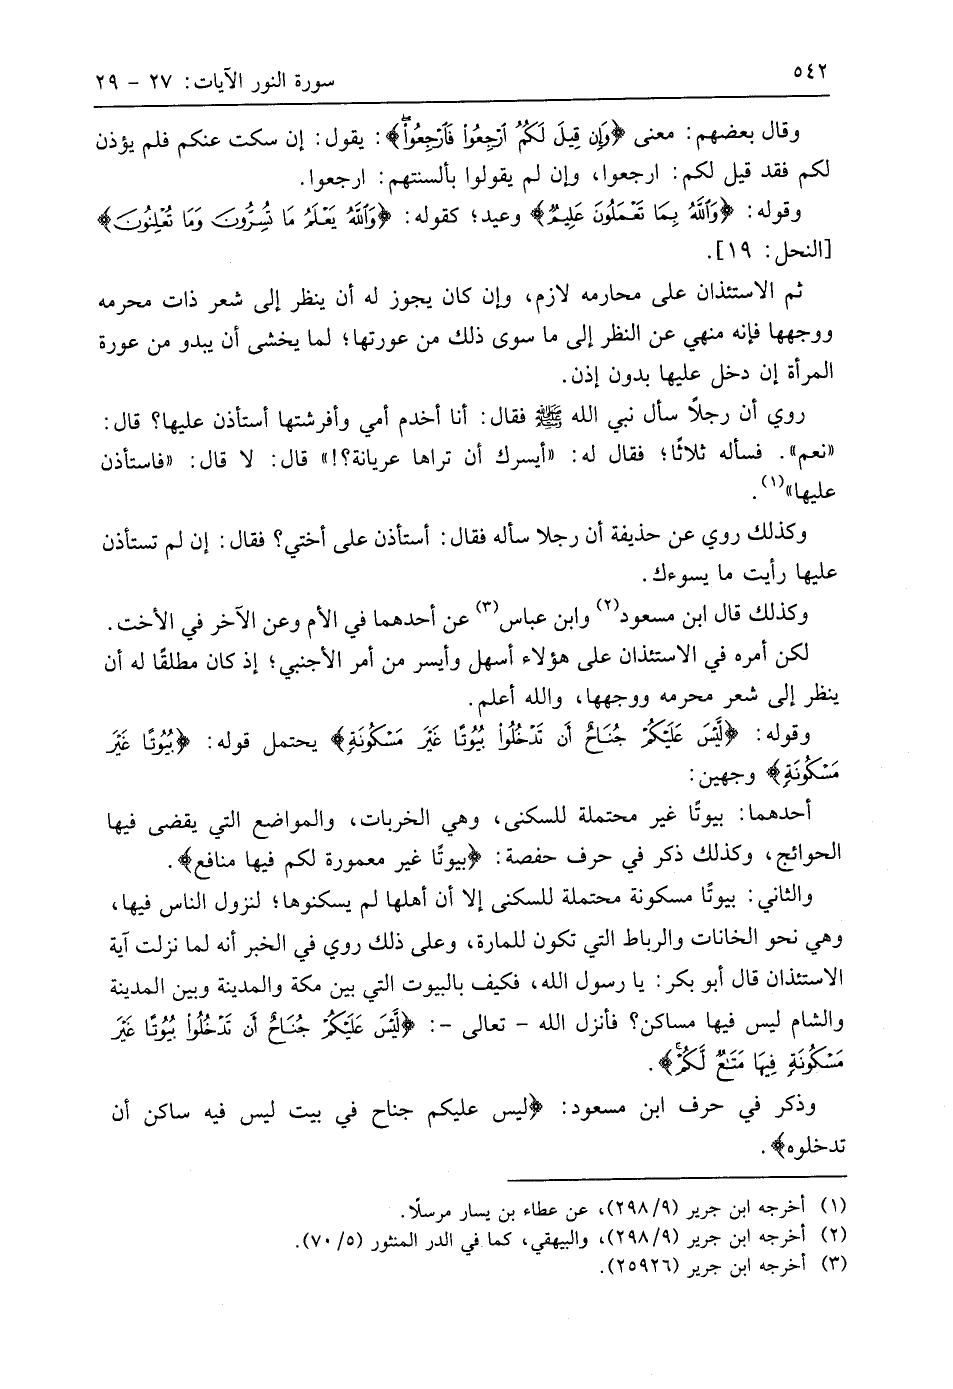 ٥٤٢
سورة النور الآيات: ٢٧ - ٢٩
وقال بعضهم: معنى ﴿وَإِن قِيلَ لَكُمُ ٱرْجِعُواْ فَٱرْجِعُواْۖ﴾: يقول: إن سكت عنكم فلم يؤذن
لكم فقد قيل لكم: ارجعوا، وإن لم يقولوا بألسنتهم: ارجعوا.
وقوله: ﴿وَٱللَّهُ بِمَا تَعْمَلُونَ عَلِيمٌ﴾ وعيد؛ كقوله: ﴿وَٱللَّهُ يَعْلَمُ مَا تُسِرُّونَ وَمَا تُعْلِنُونَ﴾
[النحل: ١٩].
ثم الاستئذان على محارمه لازم، وإن كان يجوز له أن ينظر إلى شعر ذات محرمه
ووجهها فإنه منهي عن النظر إلى ما سوى ذلك من عورتها؛ لما يخشى أن يبدو من عورة
المرأة إن دخل عليها بدون إذن.
روي أن رجلاً سأل نبي الله ﷺ فقال: أنا أخدم أمي وأفرشتها أستأذن عليها؟ قال:
«نعم». فسأله ثلاثًا؛ فقال له: «أيسرك أن تراها عريانة؟!» قال: لا قال: «فاستأذن
عليها»(١).
وكذلك روي عن حذيفة أن رجلا سأله فقال: أستأذن على أختي؟ فقال: إن لم تستأذن
عليها رأيت ما يسوءك.
وكذلك قال ابن مسعود(٢) وابن عباس(٣) عن أحدهما في الأم وعن الآخر في الأخت.
لكن أمره في الاستئذان على هؤلاء أسهل وأيسر من أمر الأجنبي؛ إذ كان مطلقًا له أن
ينظر إلى شعر محرمه ووجهها، والله أعلم.
وقوله: ﴿لَّيْسَ عَلَيْكُمْ جُنَاحٌ أَن تَدْخُلُواْ بُيُوتًا غَيْرَ مَسْكُونَةٍ﴾ يحتمل قوله: ﴿بُيُوتًا غَيْرَ
مَسْكُونَةٍ﴾ وجهين:
أحدهما: بيوتًا غير محتملة للسكنى، وهي الخربات، والمواضع التي يقضى فيها
الحوائج، وكذلك ذكر في حرف حفصة: ﴿بيوتًا غير معمورة لكم فيها منافع﴾.
والثاني: بيوتًا مسكونة محتملة للسكنى إلا أن أهلها لم يسكنوها؛ لنزول الناس فيها،
وهي نحو الخانات والرباط التي تكون للمارة، وعلى ذلك روي في الخبر أنه لما نزلت آية
الاستئذان قال أبو بكر: يا رسول الله، فكيف بالبيوت التي بين مكة والمدينة وبين المدينة
والشام ليس فيها مساكن؟ فأنزل الله - تعالى -: ﴿لَّيْسَ عَلَيْكُمْ جُنَاحٌ أَن تَدْخُلُواْ بُيُوتًا غَيْرَ
مَسْكُونَةٍ فِيهَا مَتَٰعٌ لَّكُمْۚ﴾.
وذكر في حرف ابن مسعود: ﴿ليس عليكم جناح في بيت ليس فيه ساكن أن
تدخلوه﴾.
(١) أخرجه ابن جرير (٢٩٨/٩)، عن عطاء بن يسار مرسلًا.
(٢) أخرجه ابن جرير (٢٩٨/٩)، والبيهقي، كما في الدر المنثور (٧٠/٥).
(٣) أخرجه ابن جرير (٢٥٩٢٦).